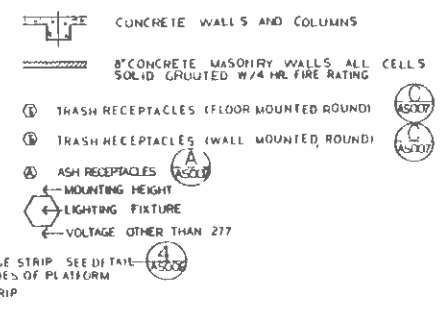 CONCRETE WALLS AND COLUMNS
8" CONCRETE MASONRY WALLS ALL CELLS
SOLID GROUTED W/4 HR. FIRE RATING
TRASH RECEPTACLES (FLOOR MOUNTED ROUND) C AS007
TRASH RECEPTACLES (WALL MOUNTED, ROUND) C AS007
A ASH RECEPTACLES A AS007
MOUNTING HEIGHT
LIGHTING FIXTURE
VOLTAGE OTHER THAN 277
GE STRIP SEE DETAIL 4 AS006
ES OF PLATFORM
RIP